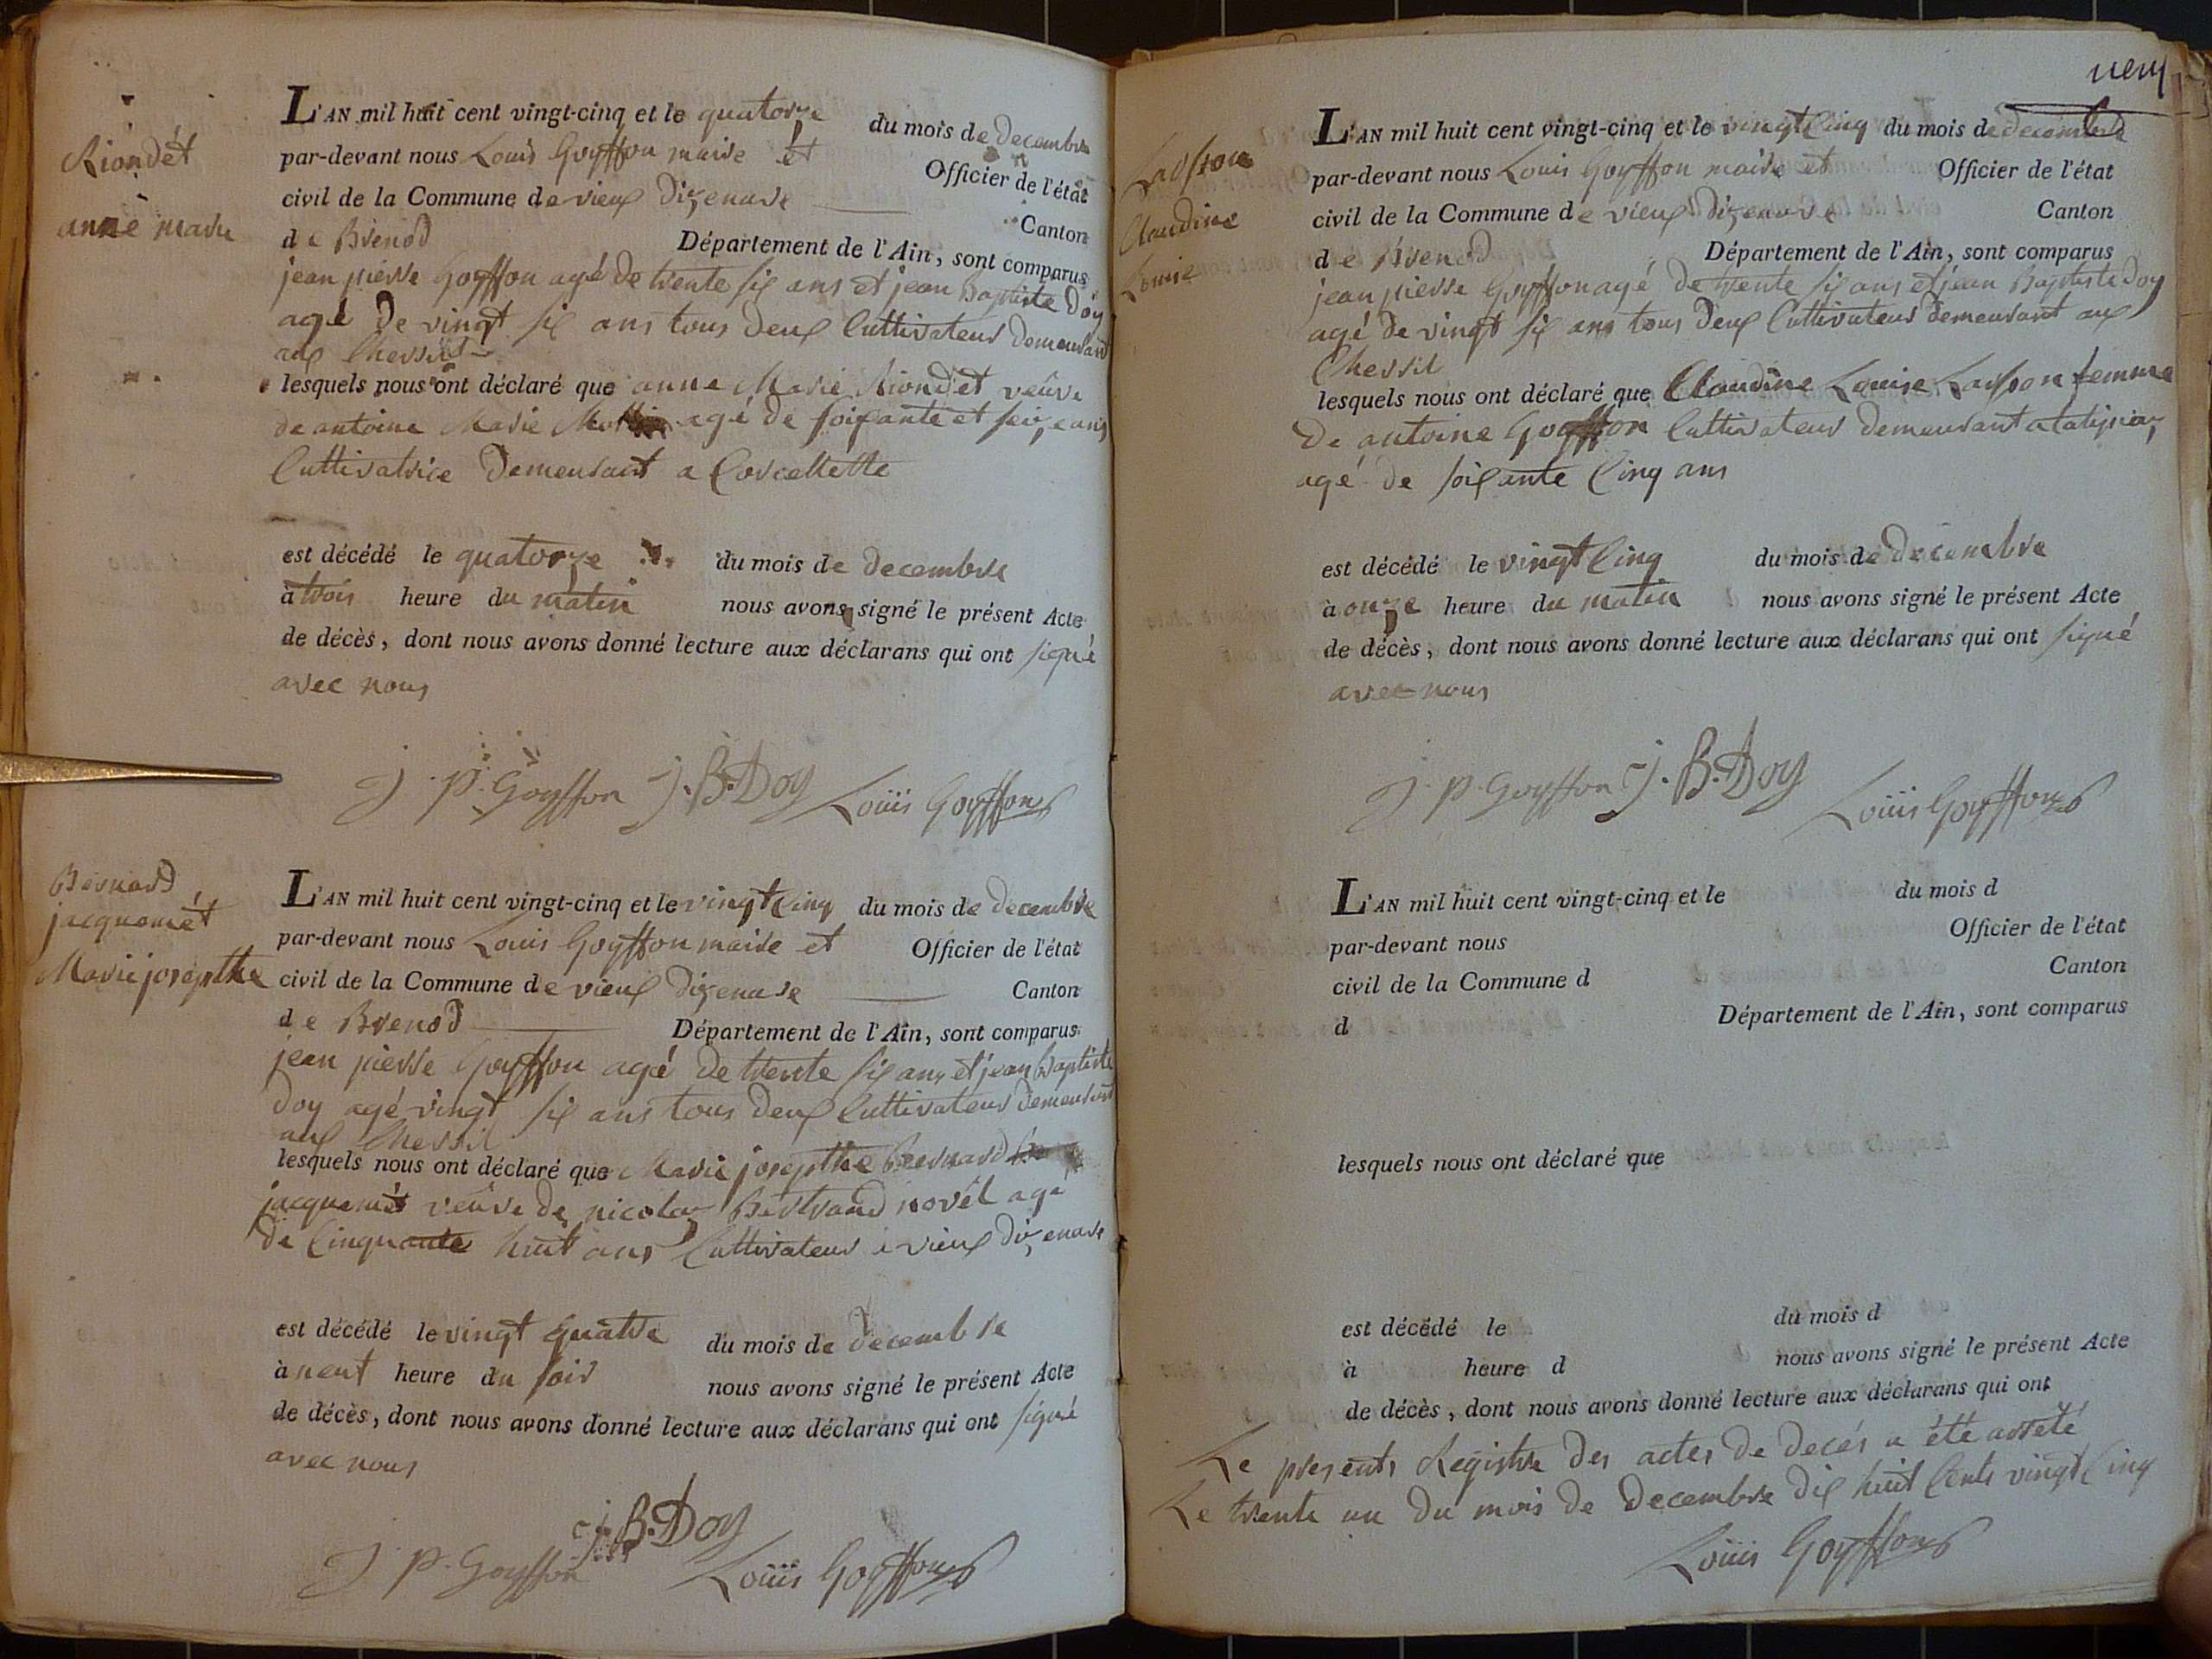 Riondêt
anne marie
L'AN mil huit cent vingt-cinq et le quatorze du mois de decembre
par-devant nous Louis Goyffon maire et Officier de l'état
civil de la Commune de vieux dizenave Canton
de Brenod Département de l'Ain, sont comparus
jean pierre Goyffon agé de trente six ans et jean Baptiste Doy
agé de vingt six ans tous deux Cultivateurs demeurant
aux Chessil
lesquels nous ont déclaré que anne Marie Riondet veûve
de antoine Marie agé de soixante et seize ans
Cultivatrice demeurant a Corcellette
est décédé le quatorze du mois de decembre
à trois heure du matin nous avons signé le présent Acte
de décès, dont nous avons donné lecture aux déclarans qui ont signé
avec nous
J. P. Goyffon J. B. Doy Louis Goyffon
Bernard
jacquemét
Marie josepthe
L'AN mil huit cent vingt-cinq et le vingt Cinq du mois de decembre
par-devant nous Louis Goyffon maire et Officier de l'état
civil de la Commune de vieux dizenave Canton
de Brenod Département de l'Ain, sont comparus
jean pierre Goyffon agé de trente six ans et jean Baptiste
Doy agé vingt six ans tous deux Cultivateurs demeurant
aux Chessil
lesquels nous ont déclaré que Marie josepthe Bernard
jacquemét veûve de nicolas Bertrand novél agé
de Cinquante huit ans Cultivateur a vieux dizenave
est décédé le vingt quatre du mois de decembre
à neuf heure du soir nous avons signé le présent Acte
de décès, dont nous avons donné lecture aux déclarans qui ont signé
avec nous
J. B. Doy
J. P. Goyffon Louis Goyffon
neuf
Claudine
Louise
L'AN mil huit cent vingt-cinq et le vingt Cinq du mois de decembre
par-devant nous Louis Goyffon maire et Officier de l'état
civil de la Commune de vieux dizenave Canton
de Brenod Département de l'Ain, sont comparus
jean pierre Goyffon agé de trente six ans et jean Baptiste Doy
agé de vingt six ans tous deux Cultivateurs demeurant aux
Chessil
lesquels nous ont déclaré que Claudine Louise femme
de antoine Goyffon Cultivateur demeurant
agé de soixante Cinq ans
est décédé le vingt Cinq du mois de decembre
à onze heure du matin nous avons signé le présent Acte
de décès, dont nous avons donné lecture aux déclarans qui ont signé
avec nous
J. P. Goyffon J. B. Doy Louis Goyffon
L'AN mil huit cent vingt-cinq et le du mois d
par-devant nous Officier de l'état
civil de la Commune d Canton
d Département de l'Ain, sont comparus
lesquels nous ont déclaré que
est décédé le du mois d
à heure d nous avons signé le présent Acte
de décès, dont nous avons donné lecture aux déclarans qui ont
Le presents Registre des actes de decés a été arreté
Le trente un du mois de decembre dix huit Cents vingt Cinq
Louis Goyffon